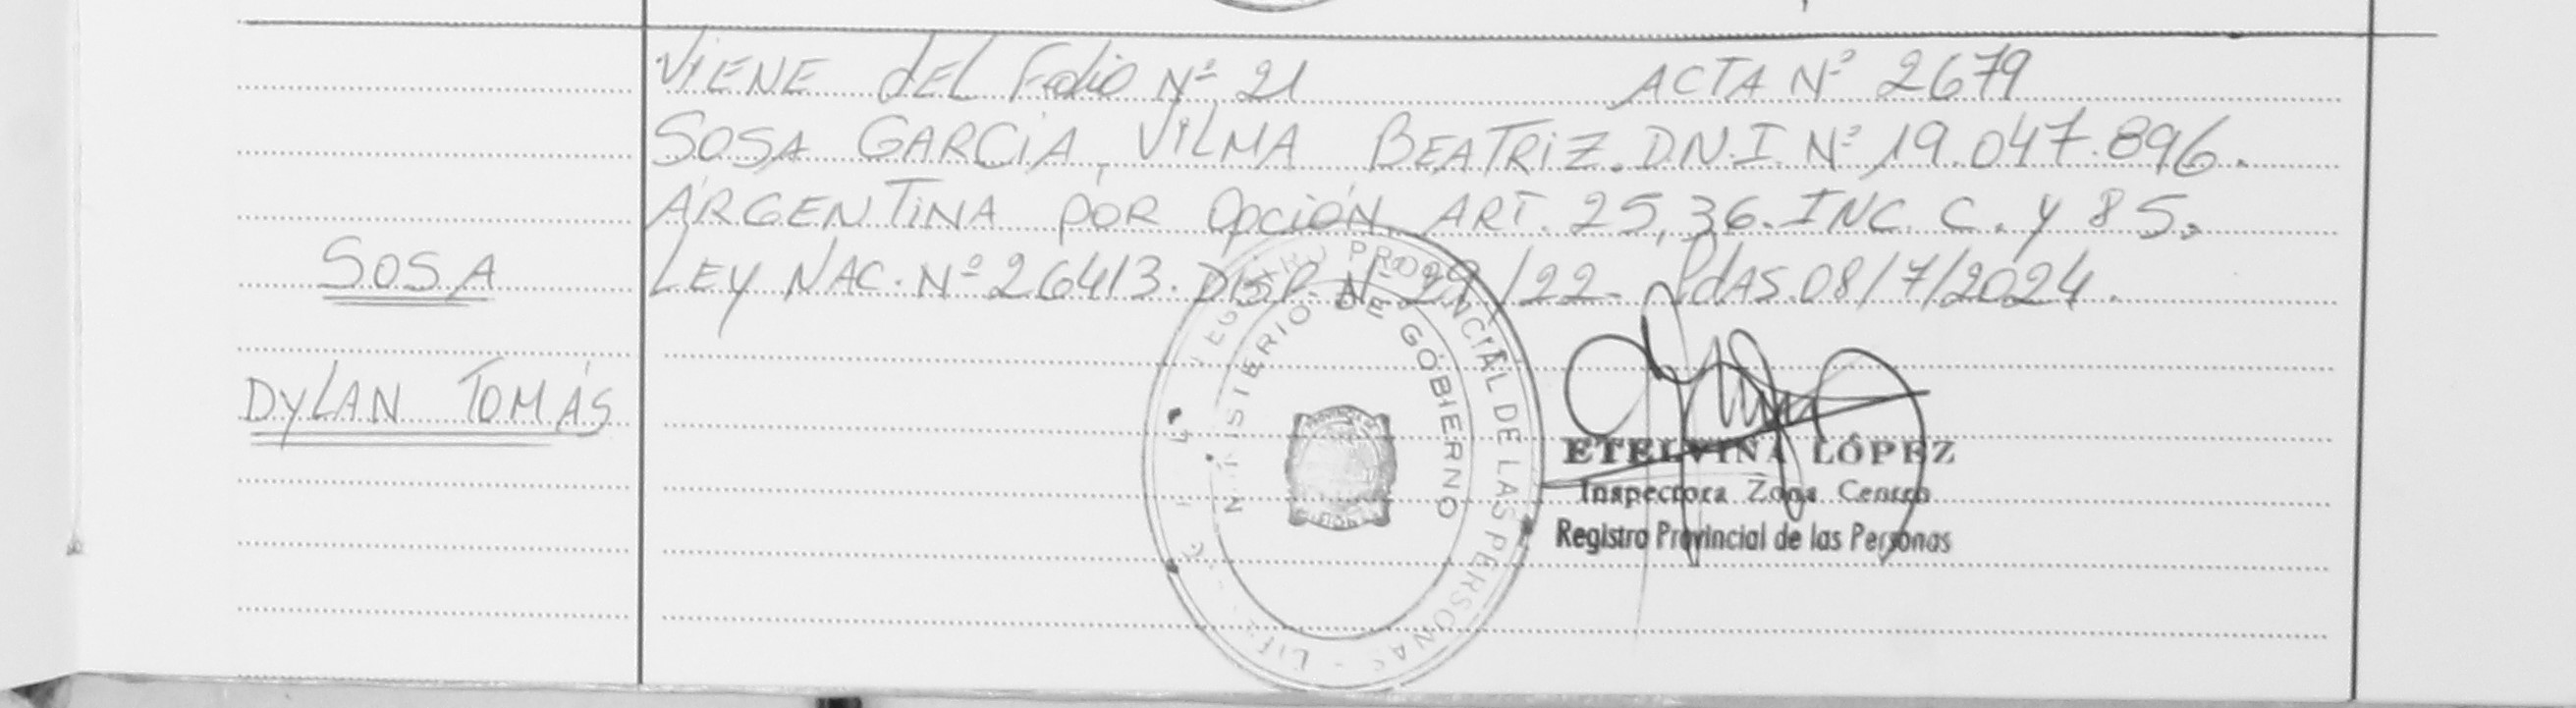 VIENE dEL Folio Nº 21 ACTA Nº 2679
SOSA GARCIA, VILMA BEATRIZ. D.N.I. Nº 19.047.896.
ARGENTINA POR Opción. ART. 25, 36. INC. C. y 85.
LEY NAC. Nº 26413. DISP. Nº 29/22. PdAS. 08/7/2024.
SOSA
DYLAN TOMÁS
REGISTRO PROVINCIAL DE LAS PERSONAS
MINISTERIO DE GOBIERNO
ETELVINA LÓPEZ
Inspectora Zona Centro
Registro Provincial de las Personas